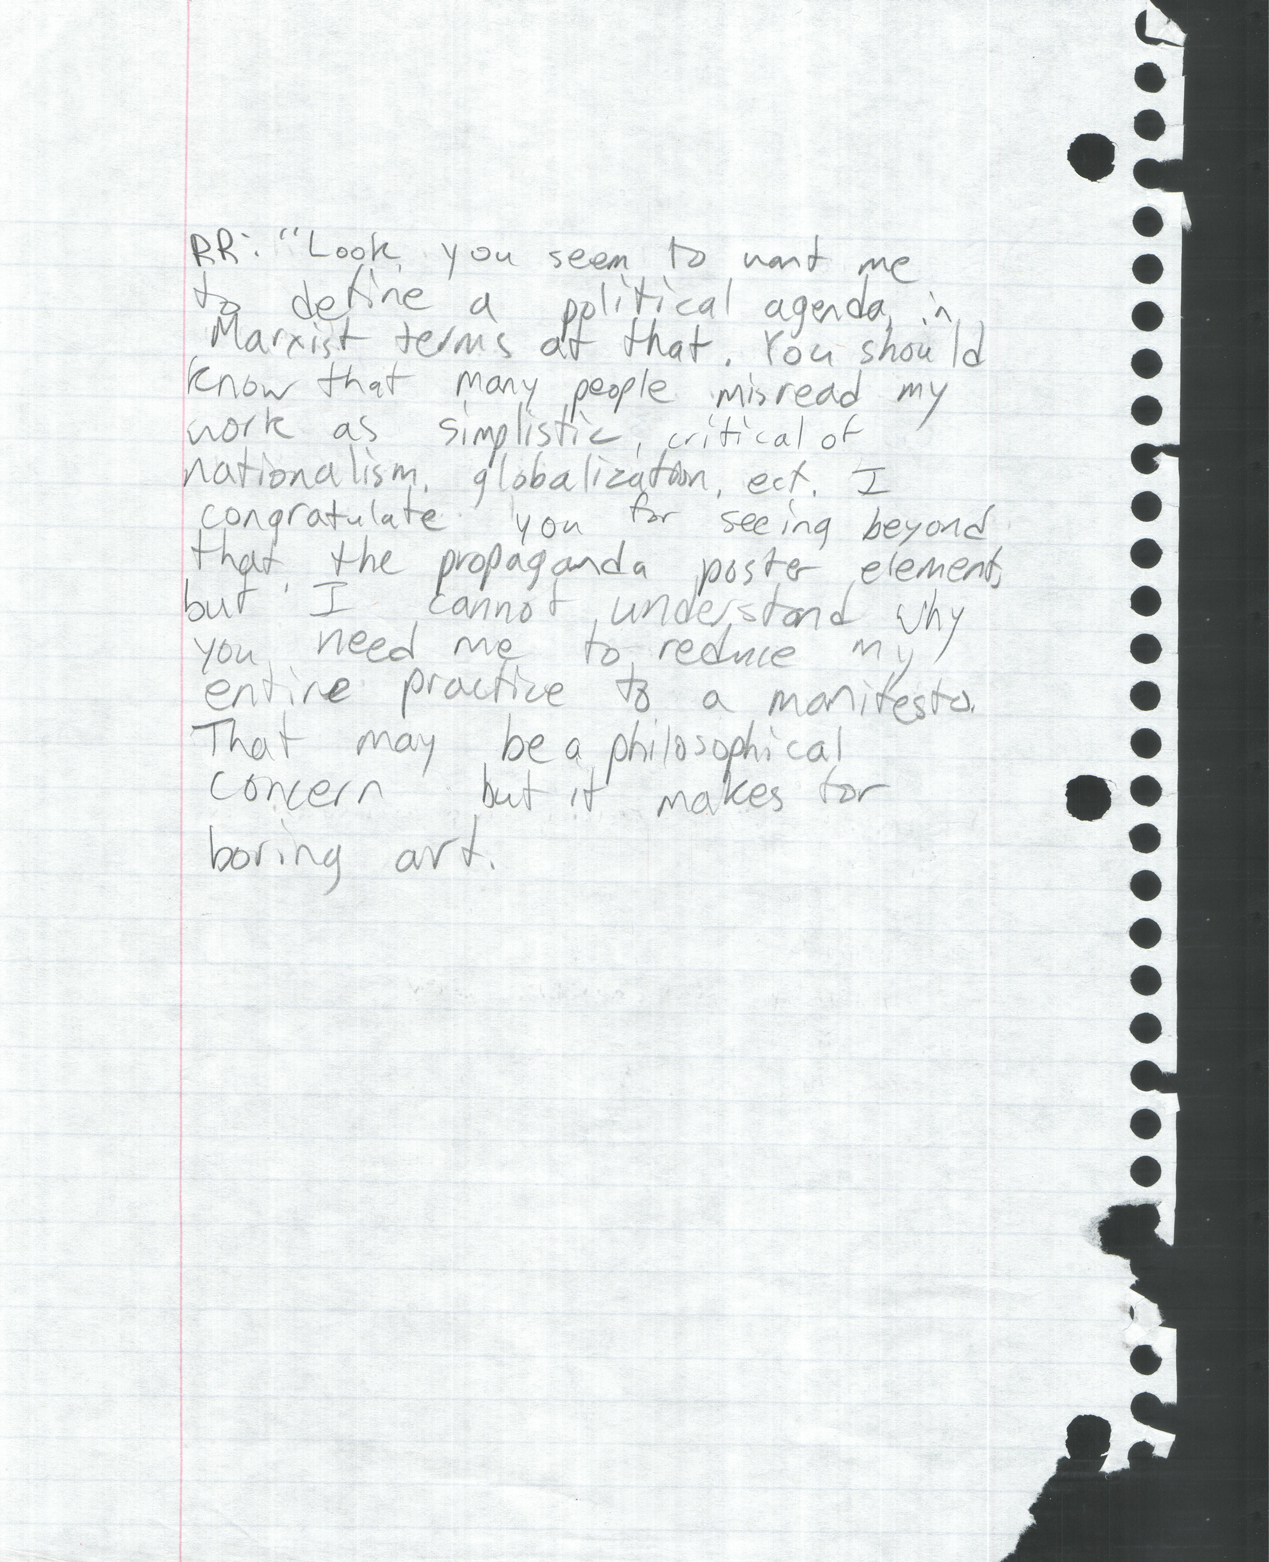 RR: "Look, you seem to want me
to define a political agenda, in
Marxist terms at that. You should
know that many people misread my
work as simplistic, critical of
nationalism, globalization, ect. I
congratulate you for seeing beyond
that, the propaganda poster element,
but I cannot understand why
you need me to reduce my
entire practice to a manifesto.
That may be a philosophical
concern but it makes for
boring art.